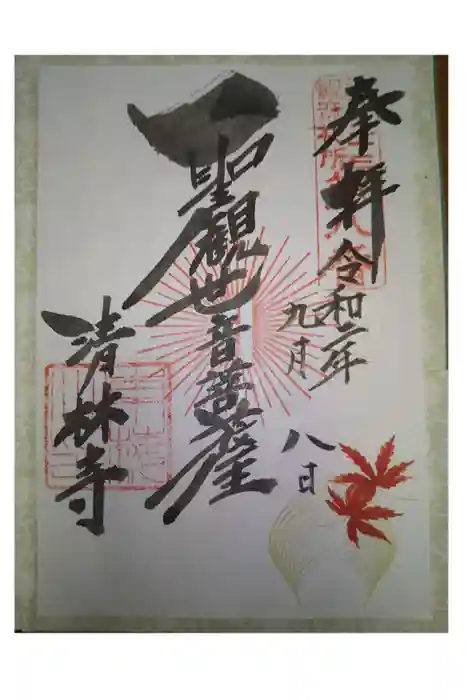 奉拝
令和二年
九月
八日
聖観世音菩薩
清林寺